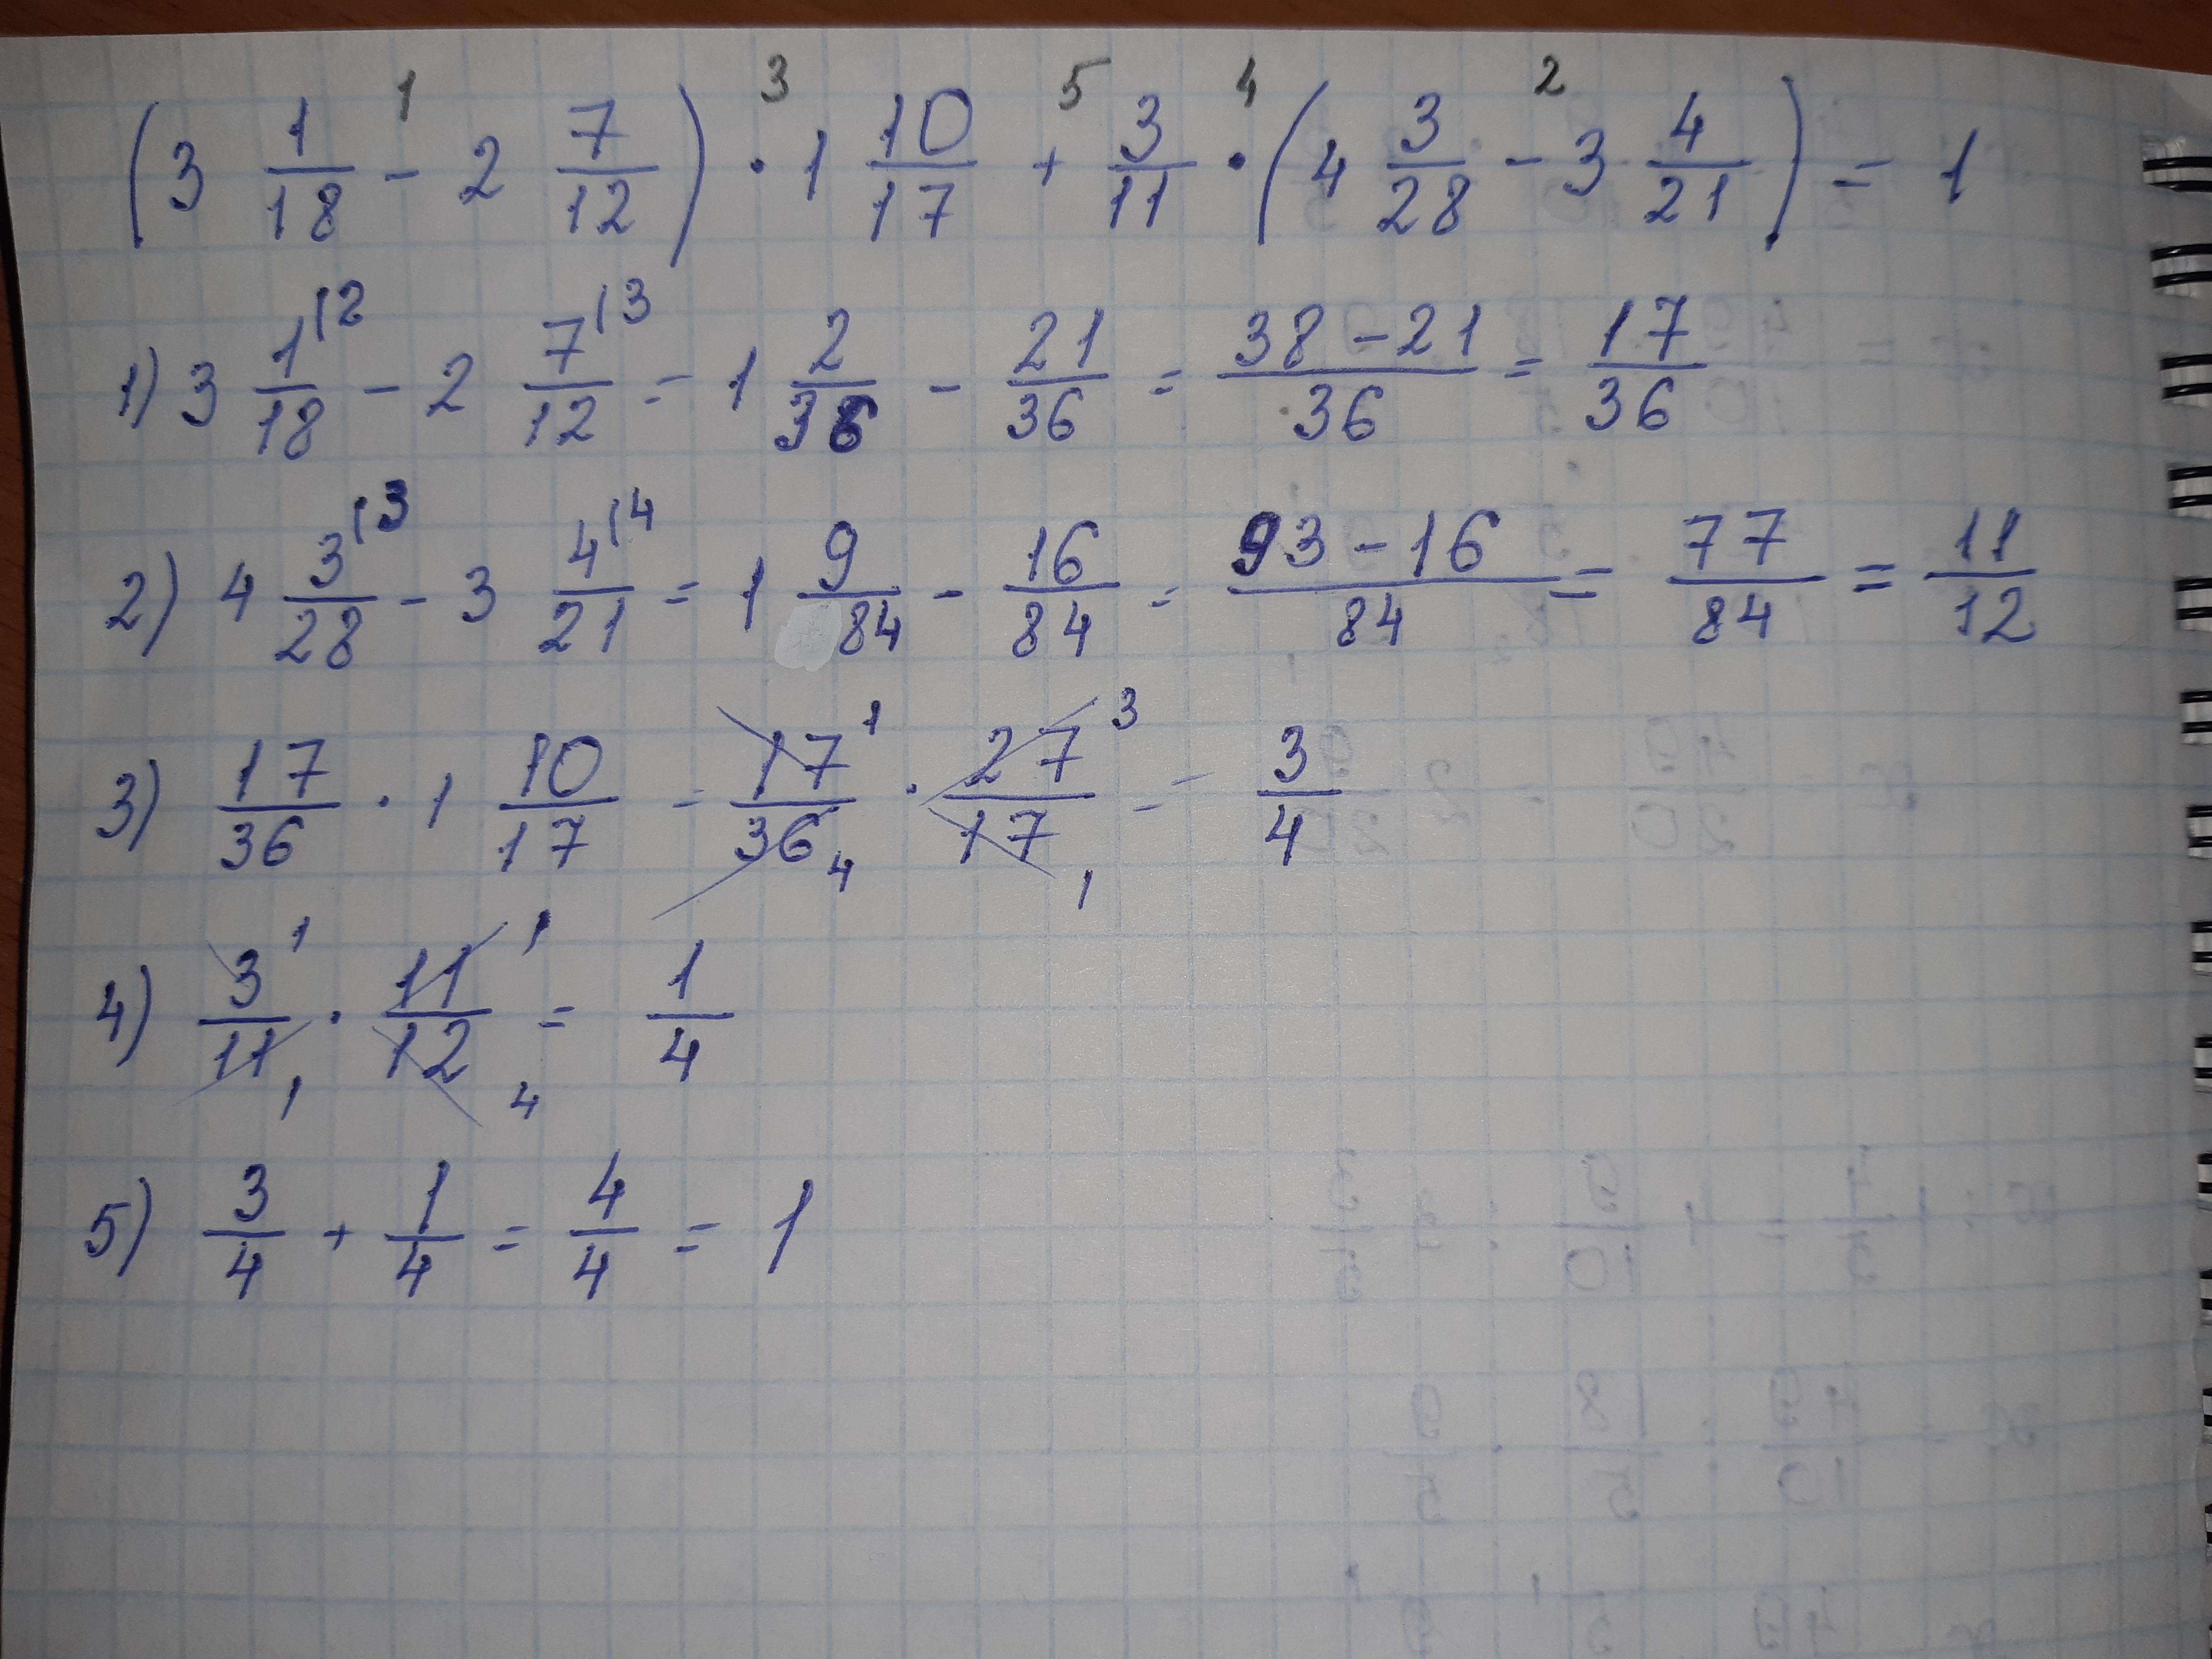 1 3 5 4 2
(3 1/18 - 2 7/12) · 1 10/17 + 3/11 · (4 3/28 - 3 4/21) = 1
1) 3 1/18 (2 - 2 7/12 (3 = 1 2/36 - 21/36 = 38-21/36 = 17/36
2) 4 3/28 (3 - 3 4/21 (4 = 1 9/84 - 16/84 = 93-16/84 = 77/84 = 11/12
3) 17/36 · 1 10/17 = 17 1/36 4 · 27 3/17 1 = 3/4
4) 3 1/11 1 · 11 1/12 4 = 1/4
5) 3/4 + 1/4 = 4/4 = 1